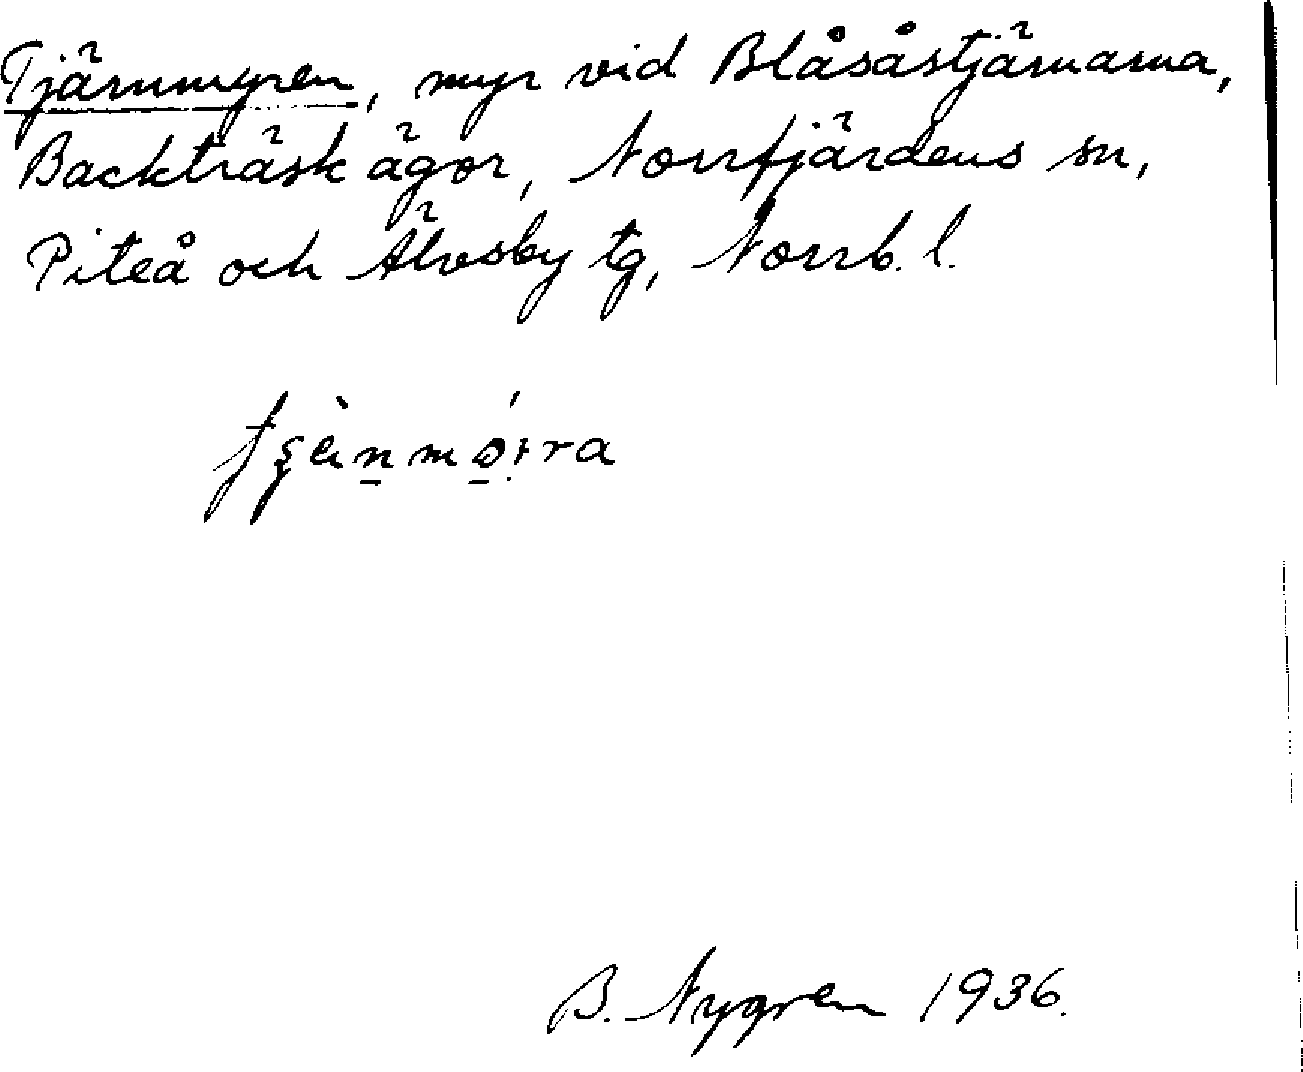 Tjärnmyren, myr vid Blåsåstjärnarna,
Backträsk ägor, Norrfjärdens sn,
Piteå och Älvsby tg, Norrb. l.
B. Nygren 1936.